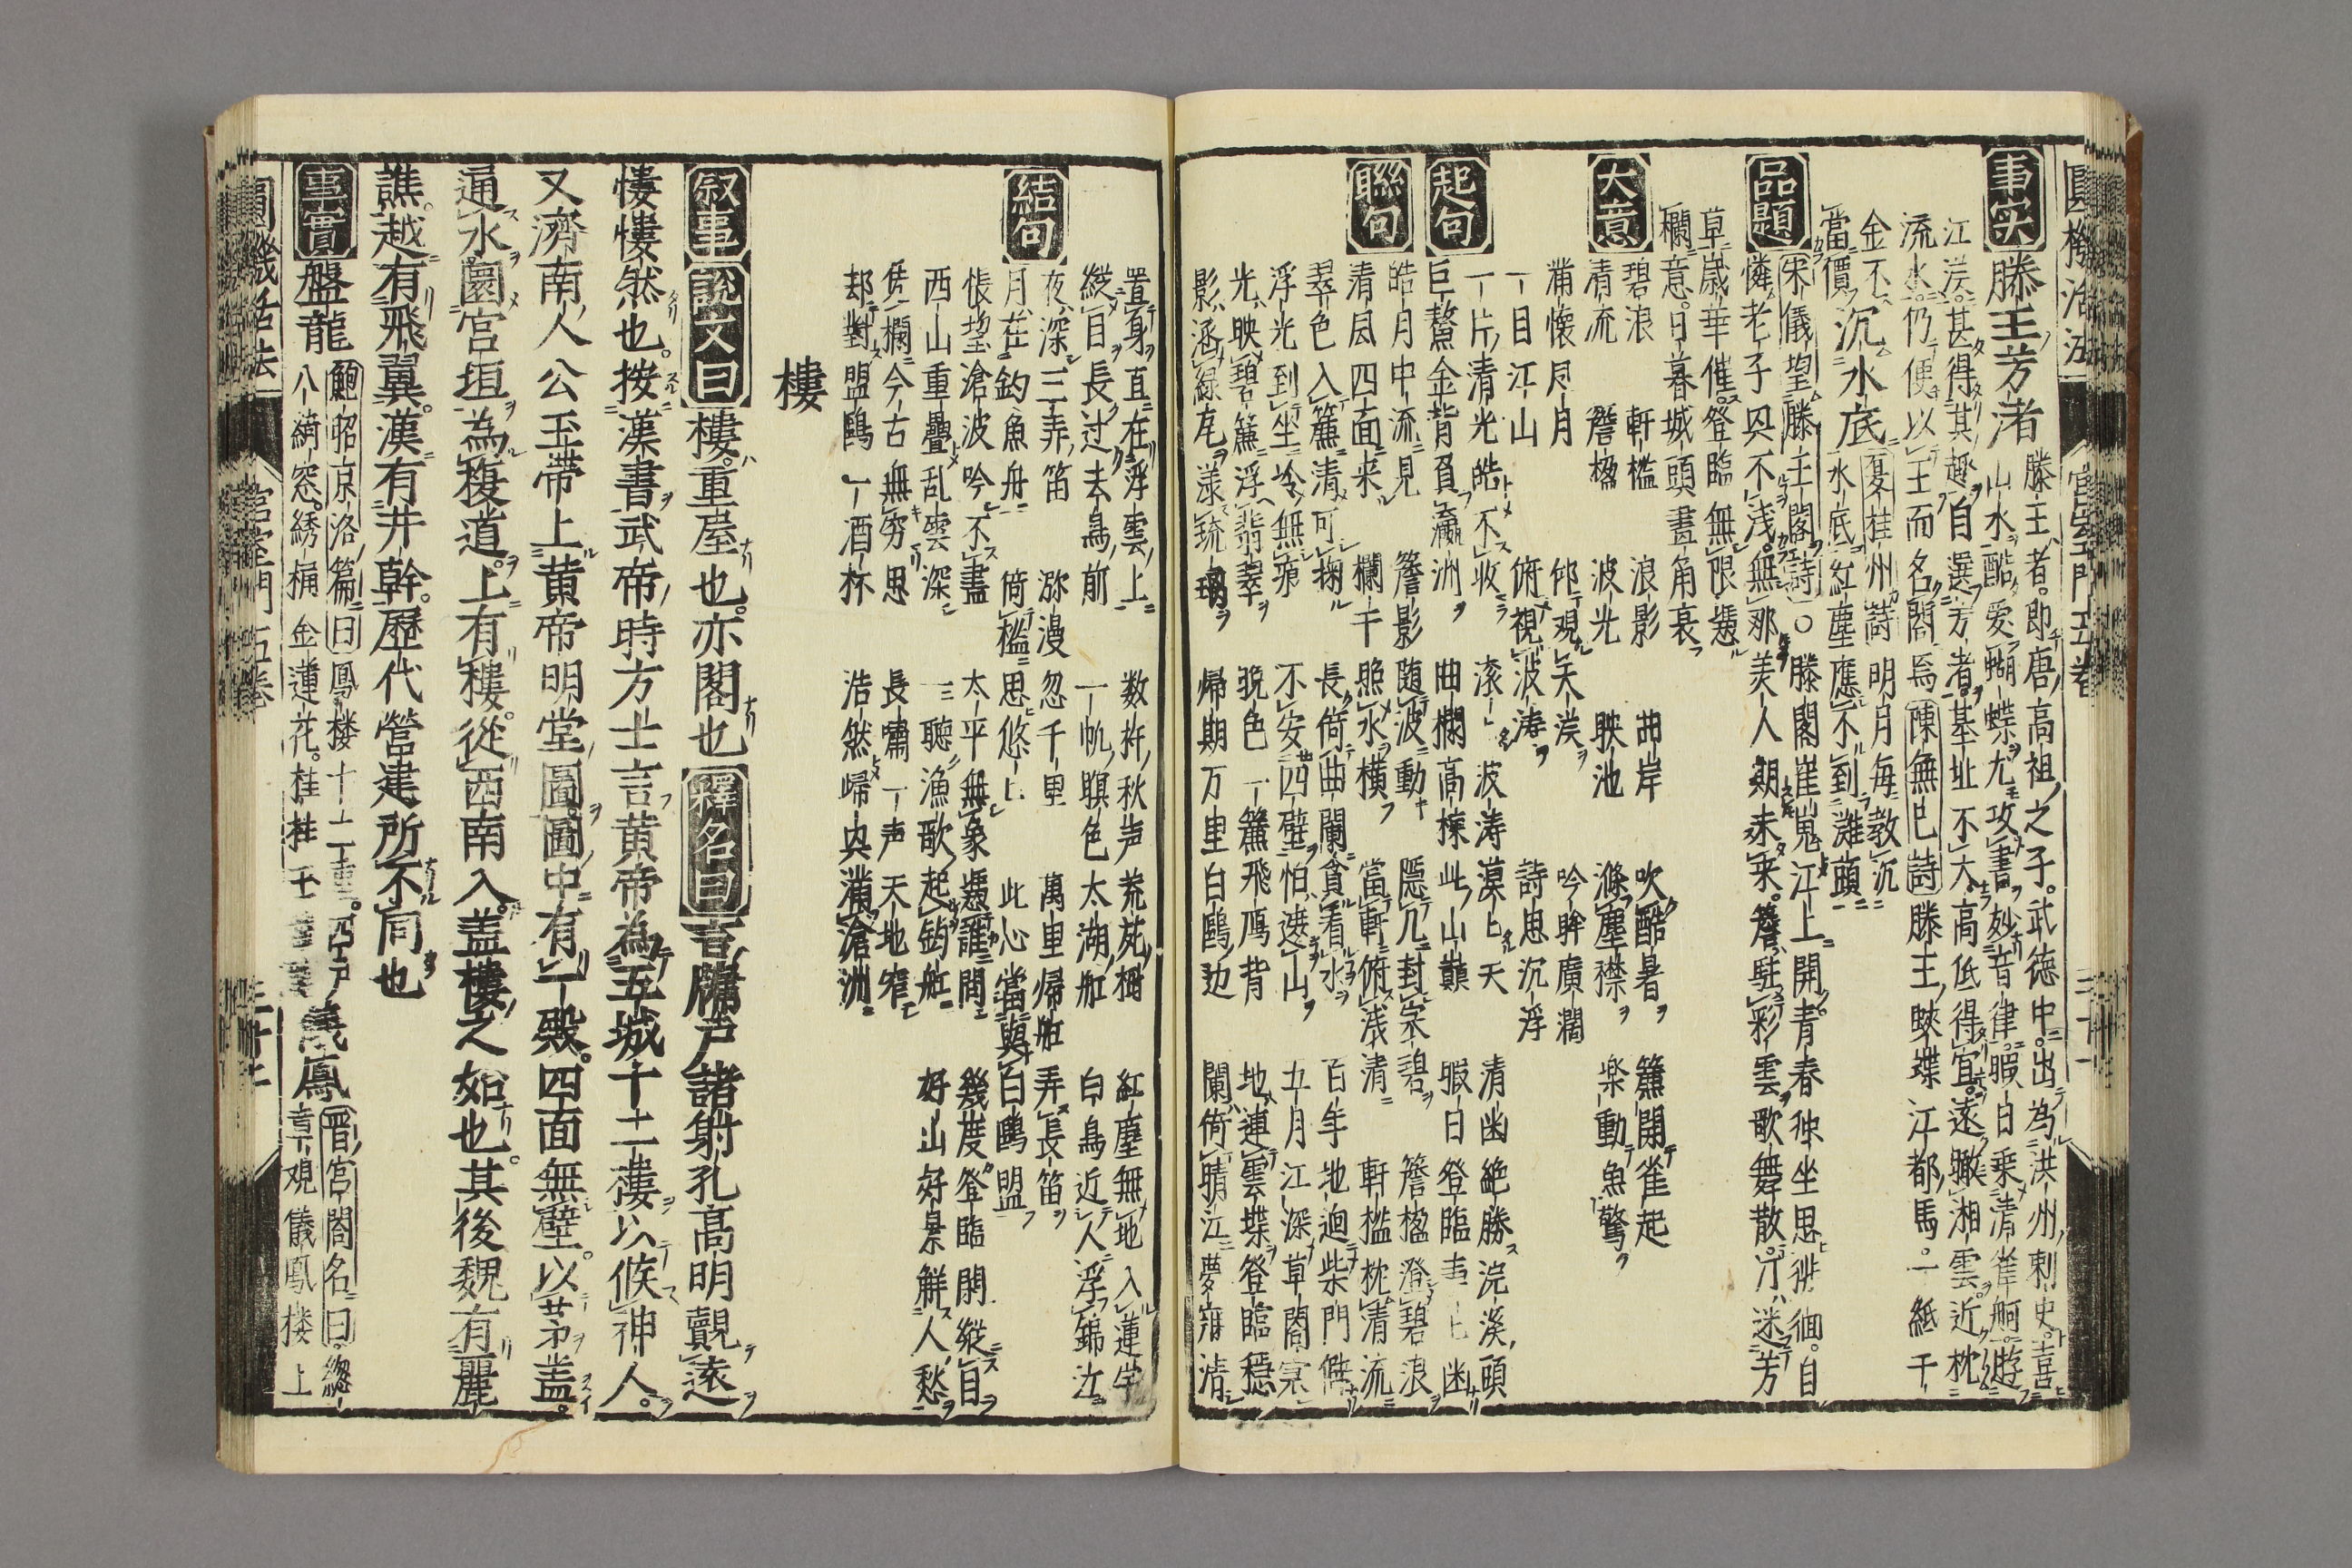 圓機活法
宮室門五卷
事実
滕王芳渚
滕王者即唐高祖之子武徳中出為洪州刺史喜
山水酷愛蝴蝶尤攻書妙音律暇日乗清雀舸遊
江渚甚得其趣自選芳者基址不大高低得宜遠瞰湘雲近枕
流水仍便以王而名閣焉陳無已詩滕王蛺蝶江都馬一紙千
金不
當價
沉水底
夏桂州詩明月每教沉
水底紅塵應不到灘頭
品題
宋儀望滕王閣詩○滕閣崔嵬江上開青春独坐思徘徊自
憐老子興不浅無那美人期未来簷駐彩雲歌舞散汀迷芳
草歳華催登臨無限憑
欄意日暮城頭畫角哀
大意
碧浪 軒檻 浪影 曲岸 吹酷暑 簾開雀起
清流 簷楹 波光 映池 滌塵襟 楽動魚驚
満懐風月 仰観天渚 吟眸廣濶
一目江山 俯視波涛 詩思沉浮
起句
一片清光皓不收 滚一波涛漠上天 清幽絶勝浣溪頭
巨鰲金背負瀛洲 曲欄高棟此山巓 暇日登臨事上幽
聯句
皓月中流見 簷影随波動 隠几封寀碧 簷楹澄碧浪
清風四面来 欄干照水横 當軒俯浅清 軒檻枕清流
翠色入簾清可掬 長倚曲闌貪看水 百年地迥柴門僻
浮光到坐冷無痕 不安四壁怕遮山 五月江深草閣寒
光映碧簾浮翡翠 晩色一簾飛鴈背 地連雲堞登臨穏
影涵緑尾漾琉璃 帰期万里白鷗边 闌倚晴江夢寐清
置身直在浮雲上 数杵秋声荒苑樹 紅塵無地入蓮宇
縦目長过去鳥前 一帆暝色太湖舡 白鳥近人浮錦江
結句
夜深三弄笛 渺漫忽千里 萬里帰船弄長笛
月在釣魚舟 倚檻思悠上 此心當與白鷗盟
悵望滄波吟不盡 太平無象憑誰問 幾度登臨閑縦目
西山重疊乱雲深 一聴漁歌起釣舡 好山好景鮮人愁
凭欄今古無窮思 長嘯一声天地窄
却對盟鷗一酒杯 浩然歸興満滄洲
樓
叙事
説文曰樓重屋也亦閣也釋名曰言牗戸諸射孔高明覿遠
慺慺然也按漢書武帝時方士言黄帝為五城十二樓以候神人
又濟南人公玉带上黄帝明堂圖圖中有一殿四面無壁以茅盖
通水圜宮垣為複道上有樓従西南入盖樓之始也其後魏有麗
譙越有飛翼漢有井幹歴代營建所不同也
事實
盤龍
鮑昭京洛篇曰鳳楼十二重四戸
八綺窓綉桷金蓮花桂柱玉
儀鳳
晋宮閣名曰總
章観儀鳳楼上
圓機活法
宮室門五卷